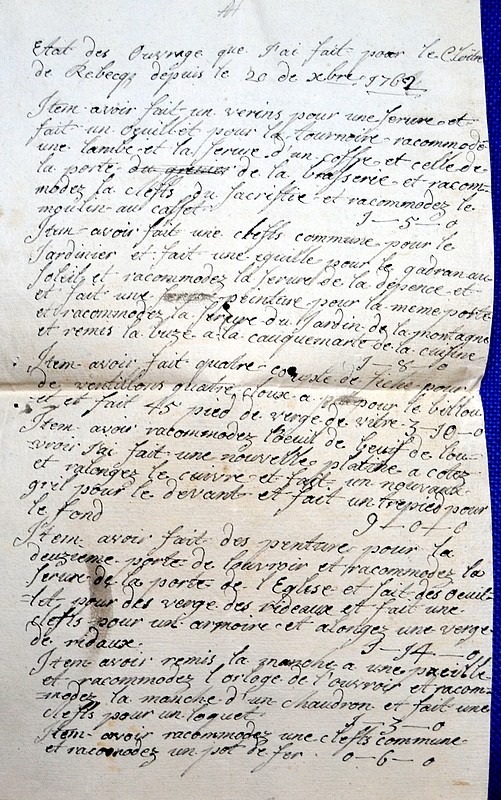 Etat des Ouvrage que J'ai fait pour le Cloître
de Rebecq depuis le 20 de xbre 176
Item avoir fait un verins pour une serure et
fait un Oeuillet pour la tournoire racommode
une lambe et la serure d'un coffre et celle de
la porte du grenier de la brasserie et racom-
modez la cleffs du Sacristie et racommodez le
moulin au caffet 1-5-0
Item avoir fait une cleffs commune pour le
Jardinier et fait une eguille pour le gadran au
soleil et racommodez la serure de la depence et
et fait une penture pour la meme porte
et racommodez la serure du Jardin de la montagne
et remis la buze a la cauquemarie de la cuisine
1-8-0
Item avoir fait quatre de fiche pour
de ventillons quatre cloux a pour le billou
et fait 45 pied de verge de vitre 3-10-0
Item avoir racommodez l'oeuil de beuf de lou-
vroir J'ai fait une nouvelle platine a cotez
et ralongez le cuivre et fait un nouvaux
gril pour le devant et fait un trepied pour
le fond 9-0-0
Item avoir fait des penture pour la
deuzieme porte de louvroir et racommodez la
serure de la porte de l'Eglise et fait des oeuil-
let pour des verge des rideaux et fait une
cleffs pour un armoire et alongez une verge
de ridaux 1-14-0
Item avoir remis la manche a une
et racommodez l'orloge de l'ouvroir et racom-
modez la manche d'un chaudron et fait une
cleffs pour un loquet 1-3-0
Item avoir racommodez une cleffs commune
et racomodez un pot de fer 0-6-0